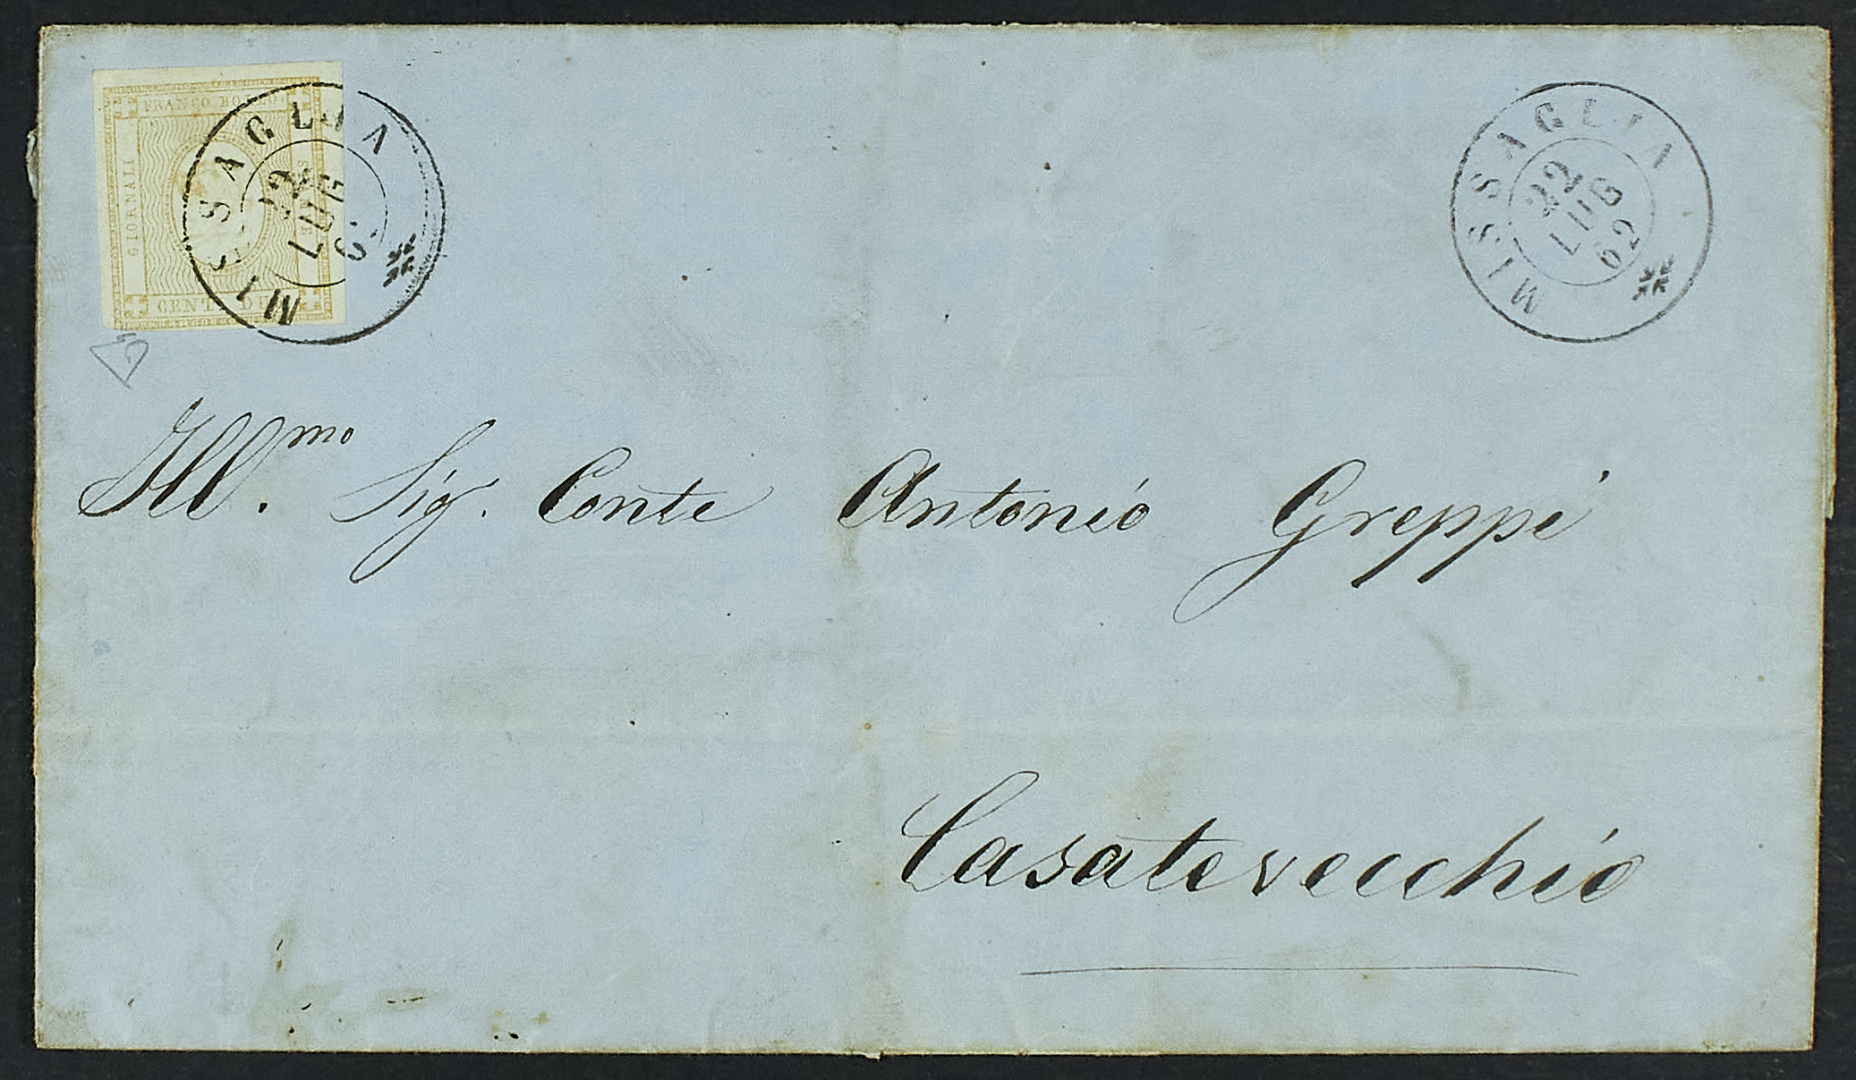 FRANCO BOLLO
GIORNALI
CENT
MISSAGLIA
22
LUG
6
MISSAGLIA
22
LUG
62
Ill.mo Sig. Conte Antonio Greppi
Casatevecchio